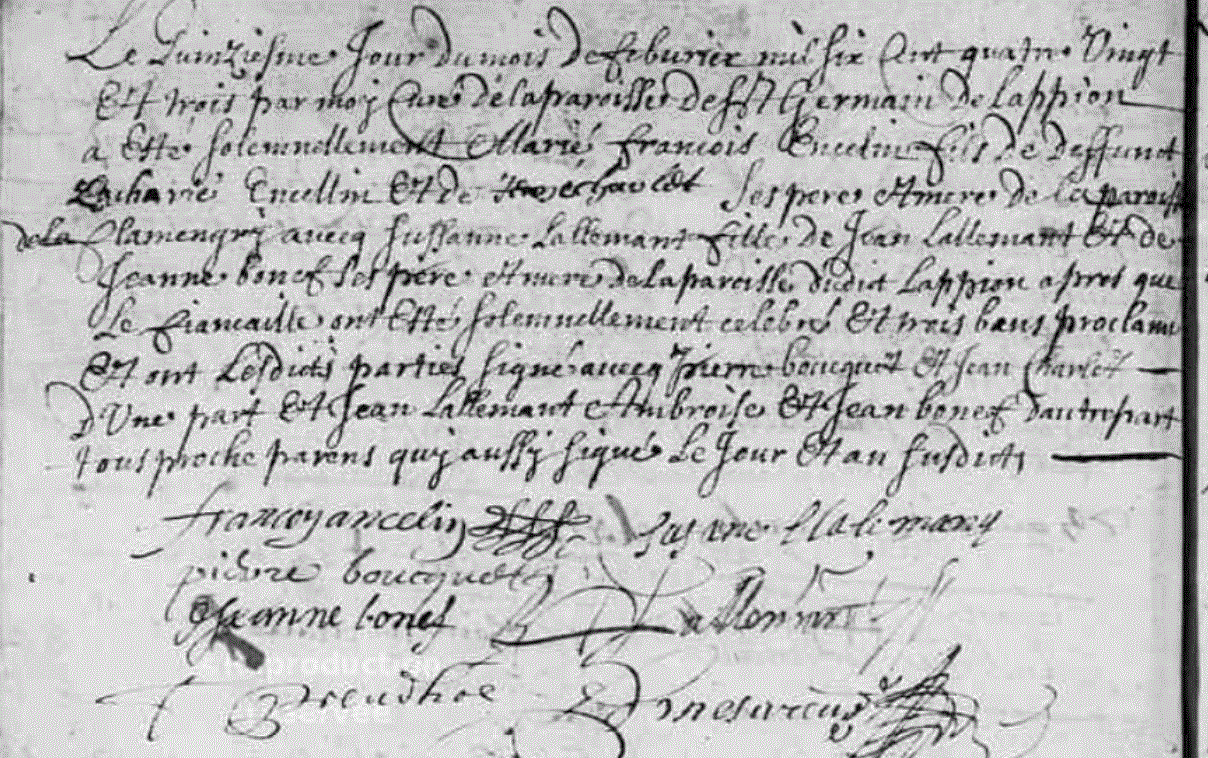 Le Quinziesme Jour du mois De feburier mil six Cent quatre Vingt
Et trois par moy Curé de la paroisse de St Germain De Lappion
a Esté solemnellement Marié francois Encelin fils De Deffunct
Zacharié Encellin Et de ses pere et mere de la paroisse
de la flamengry avecq sussanne Lallemant fille de Jean Lallemant Et de
Jeanne bonef ses pere et mere de la paroisse dudict Lappion apres que
Le fiancaille ont Esté solemnellement celebré Et trois bans proclamé
Et ont Lesdicts parties signé avecq Pierre boucquet Et Jean Charlet
D'Une part Et Jean Lallemant Ambroise Et Jean bonef d'autre part
tous proche parens quj aussy signé Le Jour Et an susdicts
francoy ancelin susanne llalemang
pierre boucquet
Jeanne bonef Lallemant